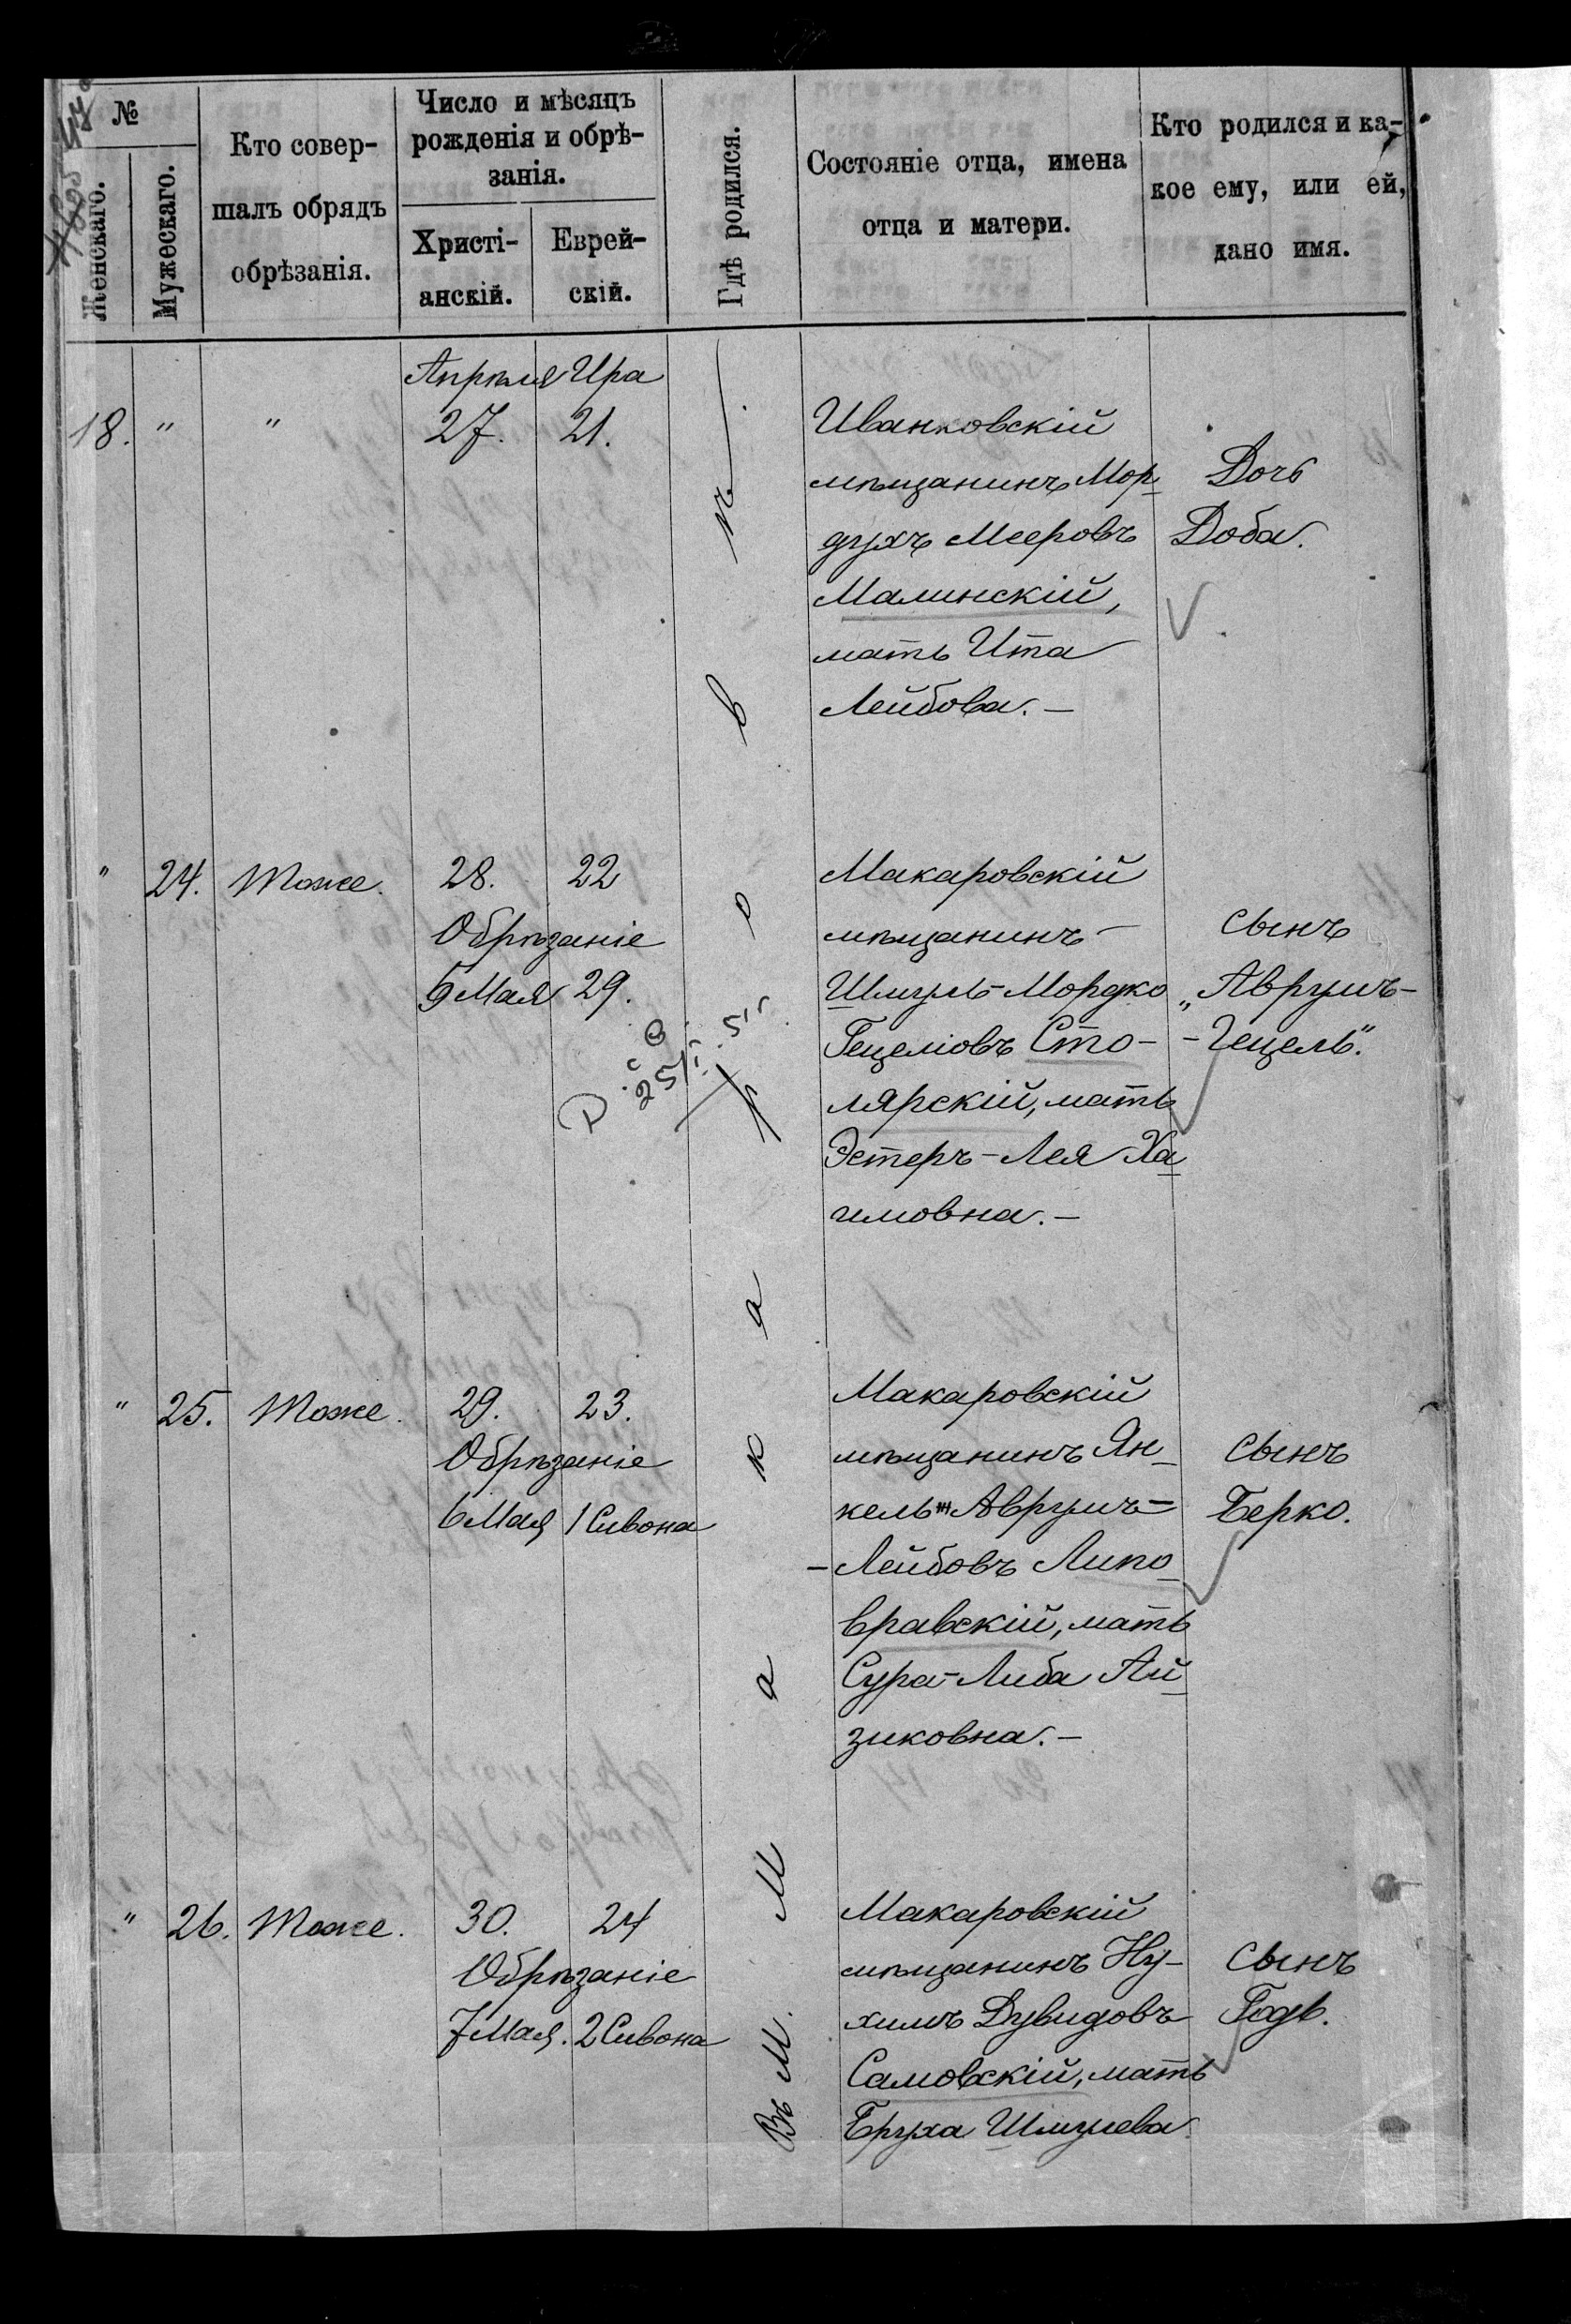 №
Женскаго.
Мужескаго.
Кто совер-
шалъ обрядъ
обрѣзанія.
Число и мѣсяцъ
рожденія и обрѣ-
занія.
Христі-
анскій.
Еврей-
скій.
Гдѣ родился.
Состояніе отца, имена
отца и матери.
Кто родился и ка-
кое ему, или ей,
дано имя.
Въ М. Макаровѣ
Апрѣля Ира
18. " " 27. 21.
Иванковскій
мѣщанинъ Мор-
духъ Мееровъ
Малинскій,
мать Ита
Лейбова. –
Дочь
Доба.
" 24. Тоже. 28. 22
Обрѣзаніе
5 Мая 29.
Макаровскій
мѣщанинъ –
Шмуль-Мордко
Гецеліовъ Сто-
лярскій, мать
Эстеръ-Лея Ха-
имовна. –
сынъ
„Аврумъ-
-Гецель".
" 25. Тоже. 29. 23.
Обрѣзаніе
6 Мая 1 Сивона
Макаровскій
мѣщанинъ Ян-
кель Аврумъ-
-Лейбовъ Липо-
вравскій, мать
Сура-Либа Ай-
зиковна. –
сынъ
Берко.
" 26. Тоже. 30. 24
Обрѣзаніе
7 Мая. 2 Сивона
Макаровскій
мѣщанинъ Ну-
химъ Дувидовъ
Самовскій, мать
Бруха Шмулева
сынъ
Годъ.